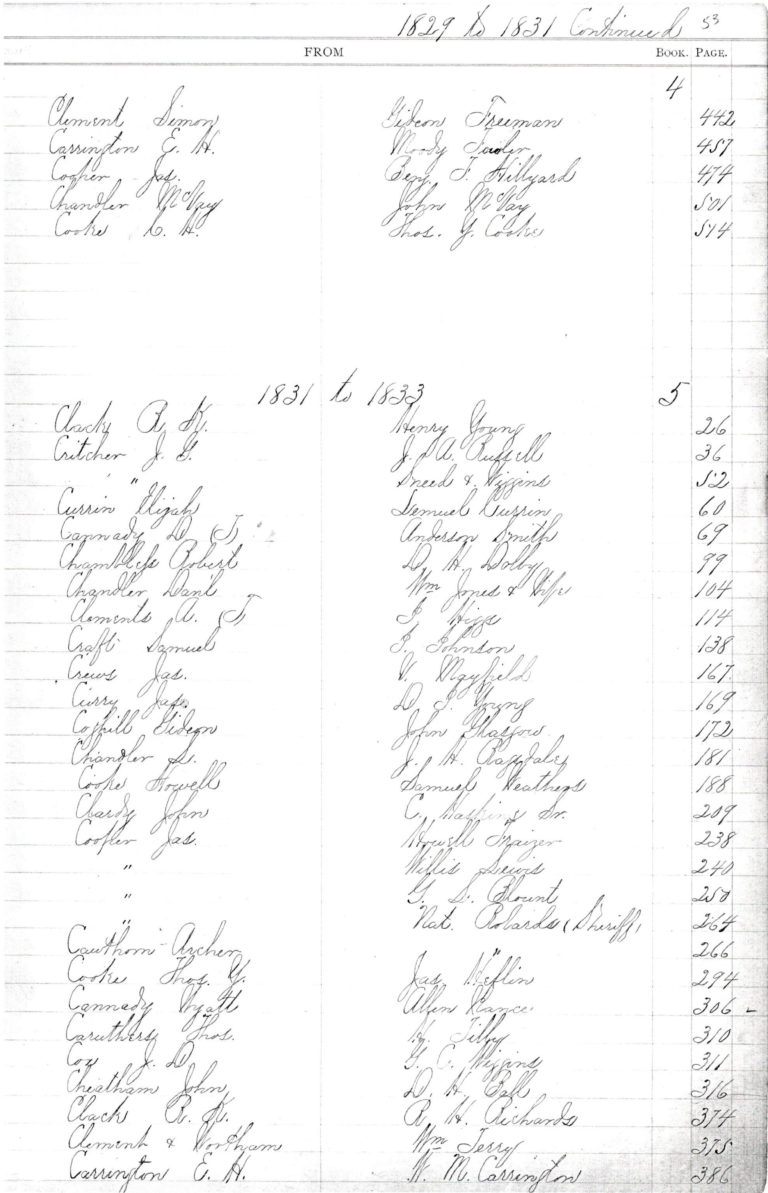 1829 to 1831 Continued 53
FROM BOOK. PAGE.
4
Clement Simon Gideon Freeman 442
Carrington E. H. Moody Fowler 457
Cooper Jas. Benj. F. Hillyard 474
Chandler McVay John McVay 501
Cooke C. H. Thos. Y. Cooke 514
1831 to 1833 5
Clack R. K. Henry Young 26
Critcher J. G. J. A. Russell 36
" Sneed & Wiggins 52
Currin Elijah Lemuel Currin 60
Cannady D (J) Anderson Smith 69
Chambless Robert D. H. Dolby 99
Chandler Danl Wm Jones & Wife 104
Clements A. (J) Higgs 114
Craft Samuel Johnson 138
Crews Jas. V. Mayfield 167.
Curry Jas. D. Young 169
Coghill Gideon John Glasgow 172
Chandler S. J. H. Ragsdale 181
Cooke Howell Samuel Weathers 188
Clardy John C. Haskins Sr. 209
Cooper Jas. Howell Fraizer 238
" Willis Lewis 240
" G. S. Blount 250
" Nat. Robards (Sheriff) 264
Cawthorn Archer " 266
Cooke Thos. Y. Jas. Heflin 294
Cannady Wyatt Allen Rance 306
Caruthers Thos. Tilly 310
Cox J. D. G. C. Wiggins 311
Cheatham John D. H. Ball 316
Clack R. K. R. H. Richards 374
Clement & Wortham Wm Terry 375
Carrington E. H. W. M. Carrington 386